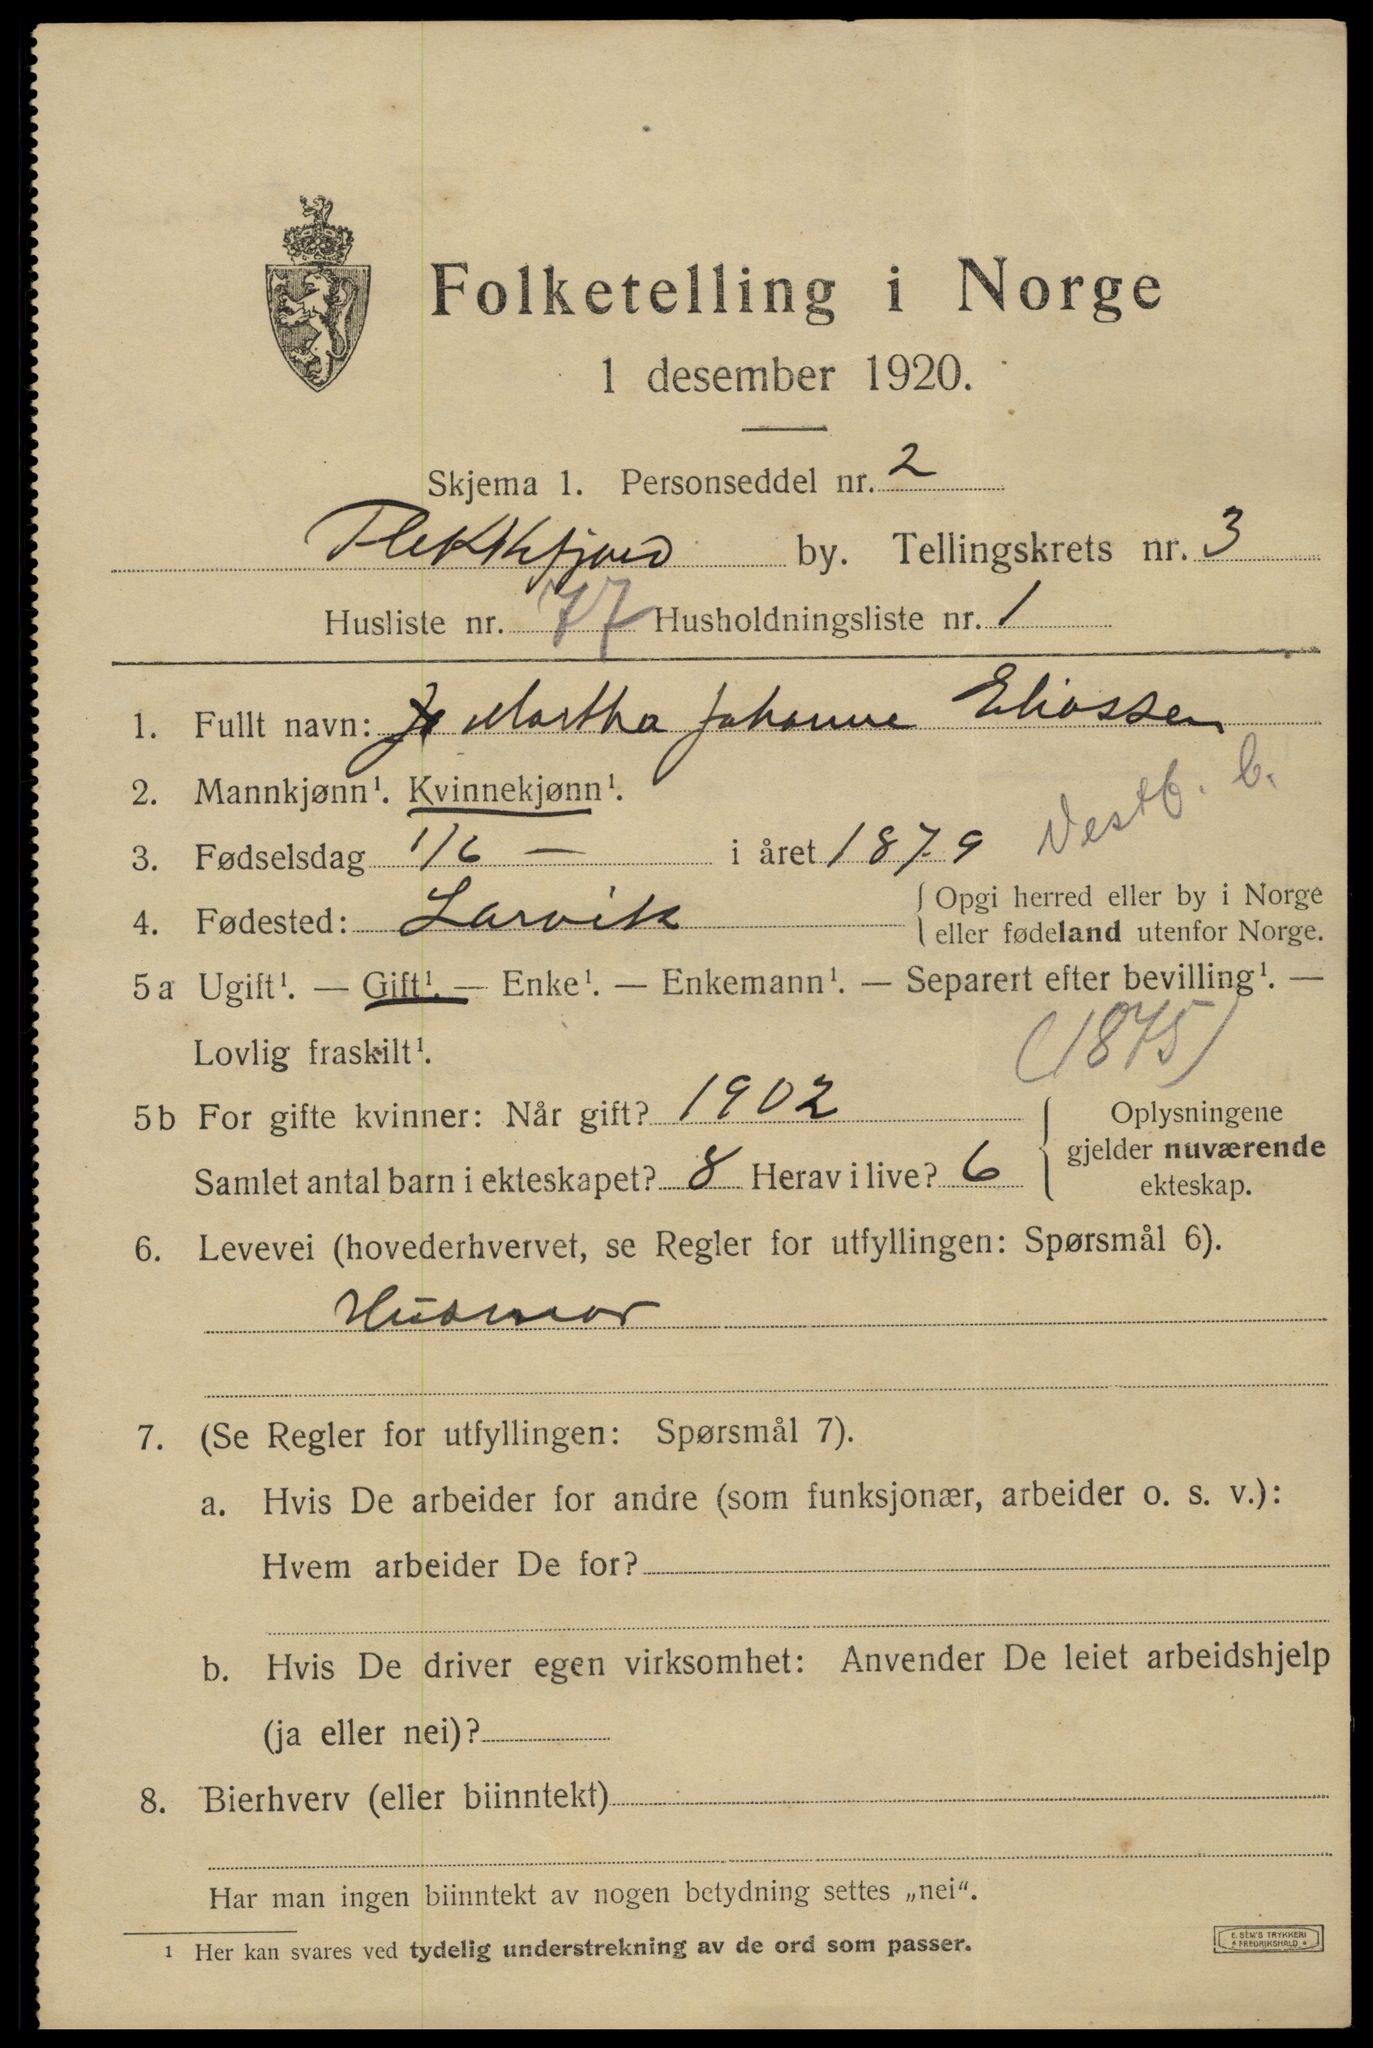 Folketelling i Norge
1 desember 1920.
Skjema 1. Personseddel nr. 2
Flekkefjord by. Tellingskrets nr. 3
Husliste nr. 77 Husholdningsliste nr. 1
1. Fullt navn: Martha Johanne Eliassen
2. Mannkjønn¹. Kvinnekjønn¹.
Vestf. b.
3. Fødselsdag 1/6 — i året 1879
4. Fødested: Larvik { Opgi herred eller by i Norge
eller fødeland utenfor Norge.
5a Ugift¹. — Gift¹. — Enke¹. — Enkemann¹. — Separert efter bevilling¹. —
Lovlig fraskilt¹.
(1875)
5b For gifte kvinner: Når gift? 1902
Samlet antal barn i ekteskapet? 8 Herav i live? 6
{ Oplysningene
gjelder nuværende
ekteskap.
6. Levevei (hovederhvervet, se Regler for utfyllingen: Spørsmål 6).
Husmor
7. (Se Regler for utfyllingen: Spørsmål 7).
a. Hvis De arbeider for andre (som funksjonær, arbeider o. s. v.):
Hvem arbeider De for?
b. Hvis De driver egen virksomhet: Anvender De leiet arbeidshjelp
(ja eller nei)?
8. Bierhverv (eller biinntekt)
Har man ingen biinntekt av nogen betydning settes „nei“.
¹ Her kan svares ved tydelig understrekning av de ord som passer.
E. SEM'S TRYKKERI
* FREDRIKSHALD *